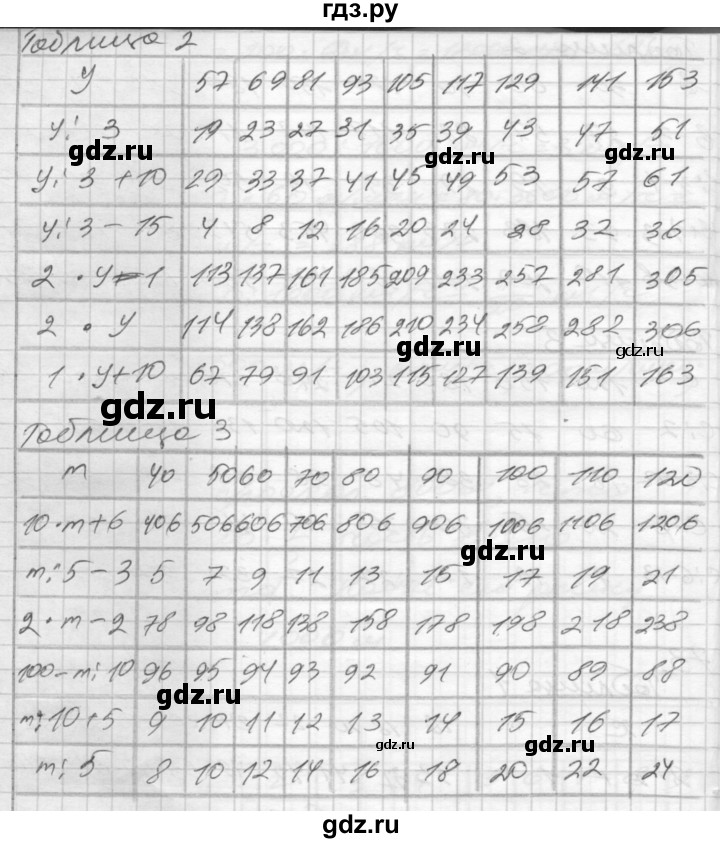 гдз.ру
Таблица 2
у 57 69 81 93 105 117 129 141 153
у : 3 19 23 27 31 35 39 43 47 51
gdz.ru gdz.ru gdz.ru
у : 3 + 10 29 33 37 41 45 49 53 57 61
у : 3 - 15 4 8 12 16 20 24 28 32 36
2 · у - 1 113 137 161 185 209 233 257 281 305
2 · у 114 138 162 186 210 234 258 282 306
gdz.ru gdz.ru
1 · у + 10 67 79 91 103 115 127 139 151 163
gdz.ru
Таблица 3
m 40 50 60 70 80 90 100 110 120
10 · m + 6 406 506 606 706 806 906 1006 1106 1206
gdz.ru
m : 5 - 3 5 7 9 11 13 15 17 19 21
2 · m - 2 78 98 118 138 158 178 198 218 238
100 - m : 10 96 95 94 93 92 91 90 89 88
gdz.ru
m : 10 + 5 9 10 11 12 13 14 15 16 17
gdz.ru gdz.ru
m : 5 8 10 12 14 16 18 20 22 24
gdz.ru